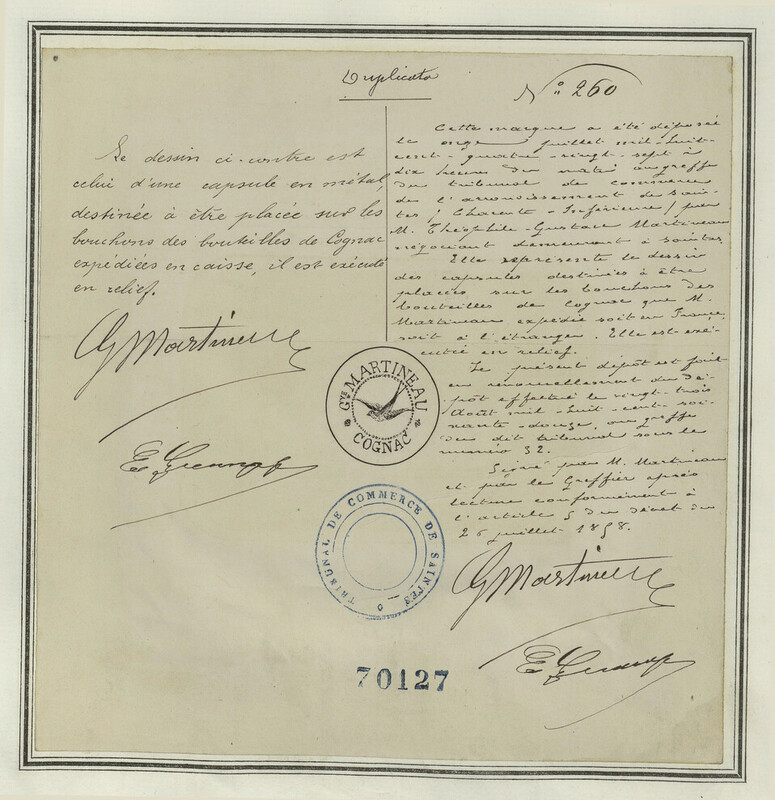 Duplicata
N° 260
Le dessin ci-contre est
celui d'une capsule en métal,
destinée à être placée sur les
bouchons des bouteilles de Cognac
expédiées en caisse, il est exécuté
en relief.
G Martineau
Cette marque a été déposée
le onze juillet mil-huit-
cent-quatre-vingt-sept à
dix heures du matin au greffe
du tribunal de commerce
de l'arrondissement de Sain-
tes (Charente-Inférieure) par
M. Théophile-Gustave Martineau
négociant demeurant à Saintes.
Elle représente le dessin
des capsules destinées à être
placées sur les bouchons des
bouteilles de Cognac que M.
Martineau expédie soit en France,
soit à l'étranger. Elle est exé-
cutée en relief.
Le présent dépôt est fait
en renouvellement du dé-
pôt effectué le vingt-trois
Août mil-huit-cent-soi-
xante-douze, au greffe
du dit tribunal sous le
numéro 32.
Signé par M. Martineau
et par le Greffier après
lecture conformément à
l'article 5 du décret du
26 juillet 1858.
G Martineau
Gve MARTINEAU
COGNAC
TRIBUNAL DE COMMERCE DE SAINTES
70127